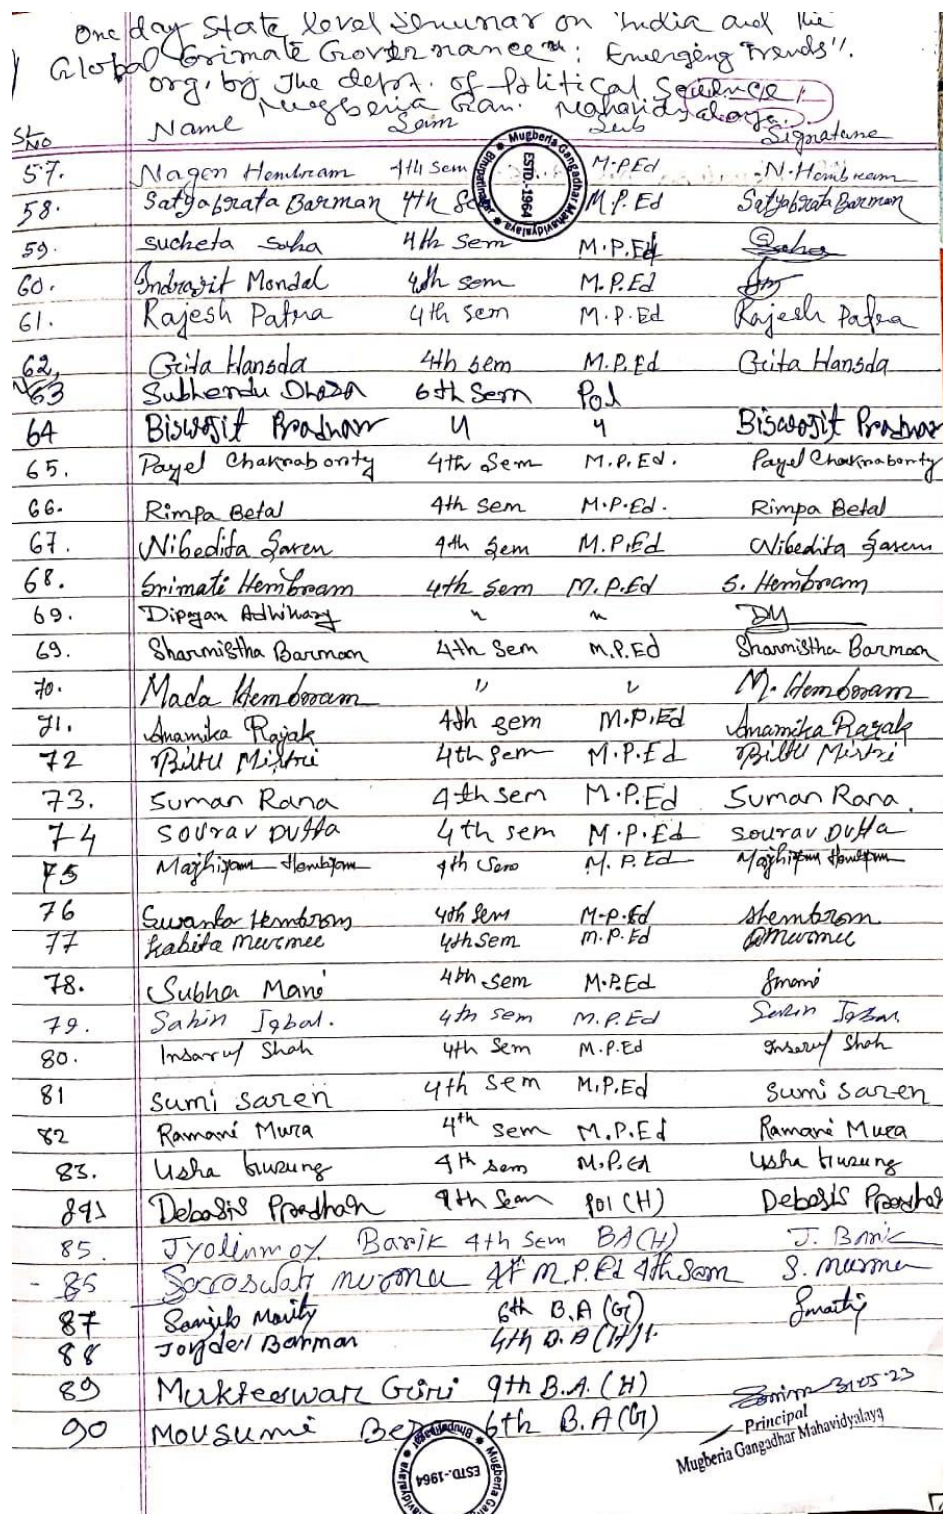 One day State level Seminar on India and the
Global Crimate Governance": Emerging Trends".
org, by The dept. of Political Science,
Mugberia Gan. Mahavidyalaya.
SL NO Name Sem Sub Signature
57. Nagen Hembram 4th Sem M.P.Ed N. Hembram
58. Satyabrata Barman 4th Sem M.P. Ed Satyabrata Barman
59. Sucheta Saha 4th Sem M.P.Ed Saha
60. Indrajit Mondal 4th sem M.P.Ed
61. Rajesh Patra 4th sem M.P.Ed Rajesh Patra
62. Gita Hansda 4th sem M.P.Ed Gita Hansda
63 Subhendu Dhara 6th Sem Pol
64 Biswajit Pradhan " " Biswajit Pradhan
65. Payel Chakraborty 4th Sem M.P.Ed. Payel Chakraborty
66. Rimpa Betal 4th Sem M.P.Ed. Rimpa Betal
67. Nibedita Saren 4th Sem M.P.Ed Nibedita Saren
68. Srimati Hembram 4th sem M.P.Ed S. Hembram
69. Dipayan Adhikary " "
69. Sharmistha Barman 4th Sem M.P.Ed Sharmistha Barman
70. Mada Hembram " " M. Hembram
71. Anamika Rajak 4th sem M.P.Ed Anamika Rajak
72 Biltu Mistri 4th Sem M.P.Ed Biltu Mistri
73. Suman Rana 4th sem M.P.Ed Suman Rana.
74 Sourav Dutta 4th sem M.P.Ed Sourav Dutta
75 Hembram 4th Sem M.P.Ed
76 Hembrom 4th Sem M.P.Ed SHembrom
77 Kabita Murmu 4th Sem M.P.Ed
78. Subha Mani 4th sem M.P.Ed Smani
79. Sahin Iqbal. 4th sem M.P.Ed Sahin Iqbal
80. Insaruf Shah 4th Sem M.P.Ed Insaruf Shah
81 Sumi Saren 4th Sem M.P.Ed Sumi Saren
82 Ramani Mura 4th sem M.P.Ed Ramani Mura
83. Usha Gurung 4th sem M.P.Ed Usha Gurung
84 Debasis Pradhan 4th Sem Pol (H) Debasis Pradhan
85. Jyotirmoy Barik 4th Sem BA(H) J. Barik
85 Saraswati murmu M.P.Ed 4th Sem S. murmu
87 Sanjib Maity 6th B.A (G) Smaity
88 Joydev Barman 4th B.A (H)
89 Mukteswar Giri 4th B.A. (H)
90 Mousumi Bera 6th B.A(G)
31.05.23
Principal
Mugberia Gangadhar Mahavidyalaya
Mugberia Gangadhar Mahavidyalaya
ESTD.-1964
Bhupatinagar
ESTD.-1964